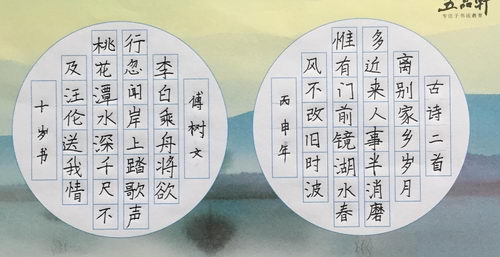 五品轩
古诗二首
离别家乡岁月
多近来人事半消磨
惟有门前镜湖水春
风不改旧时波
丙申年
傅树文
李白乘舟将欲
行忽闻岸上踏歌声
桃花潭水深千尺不
及汪伦送我情
十岁书